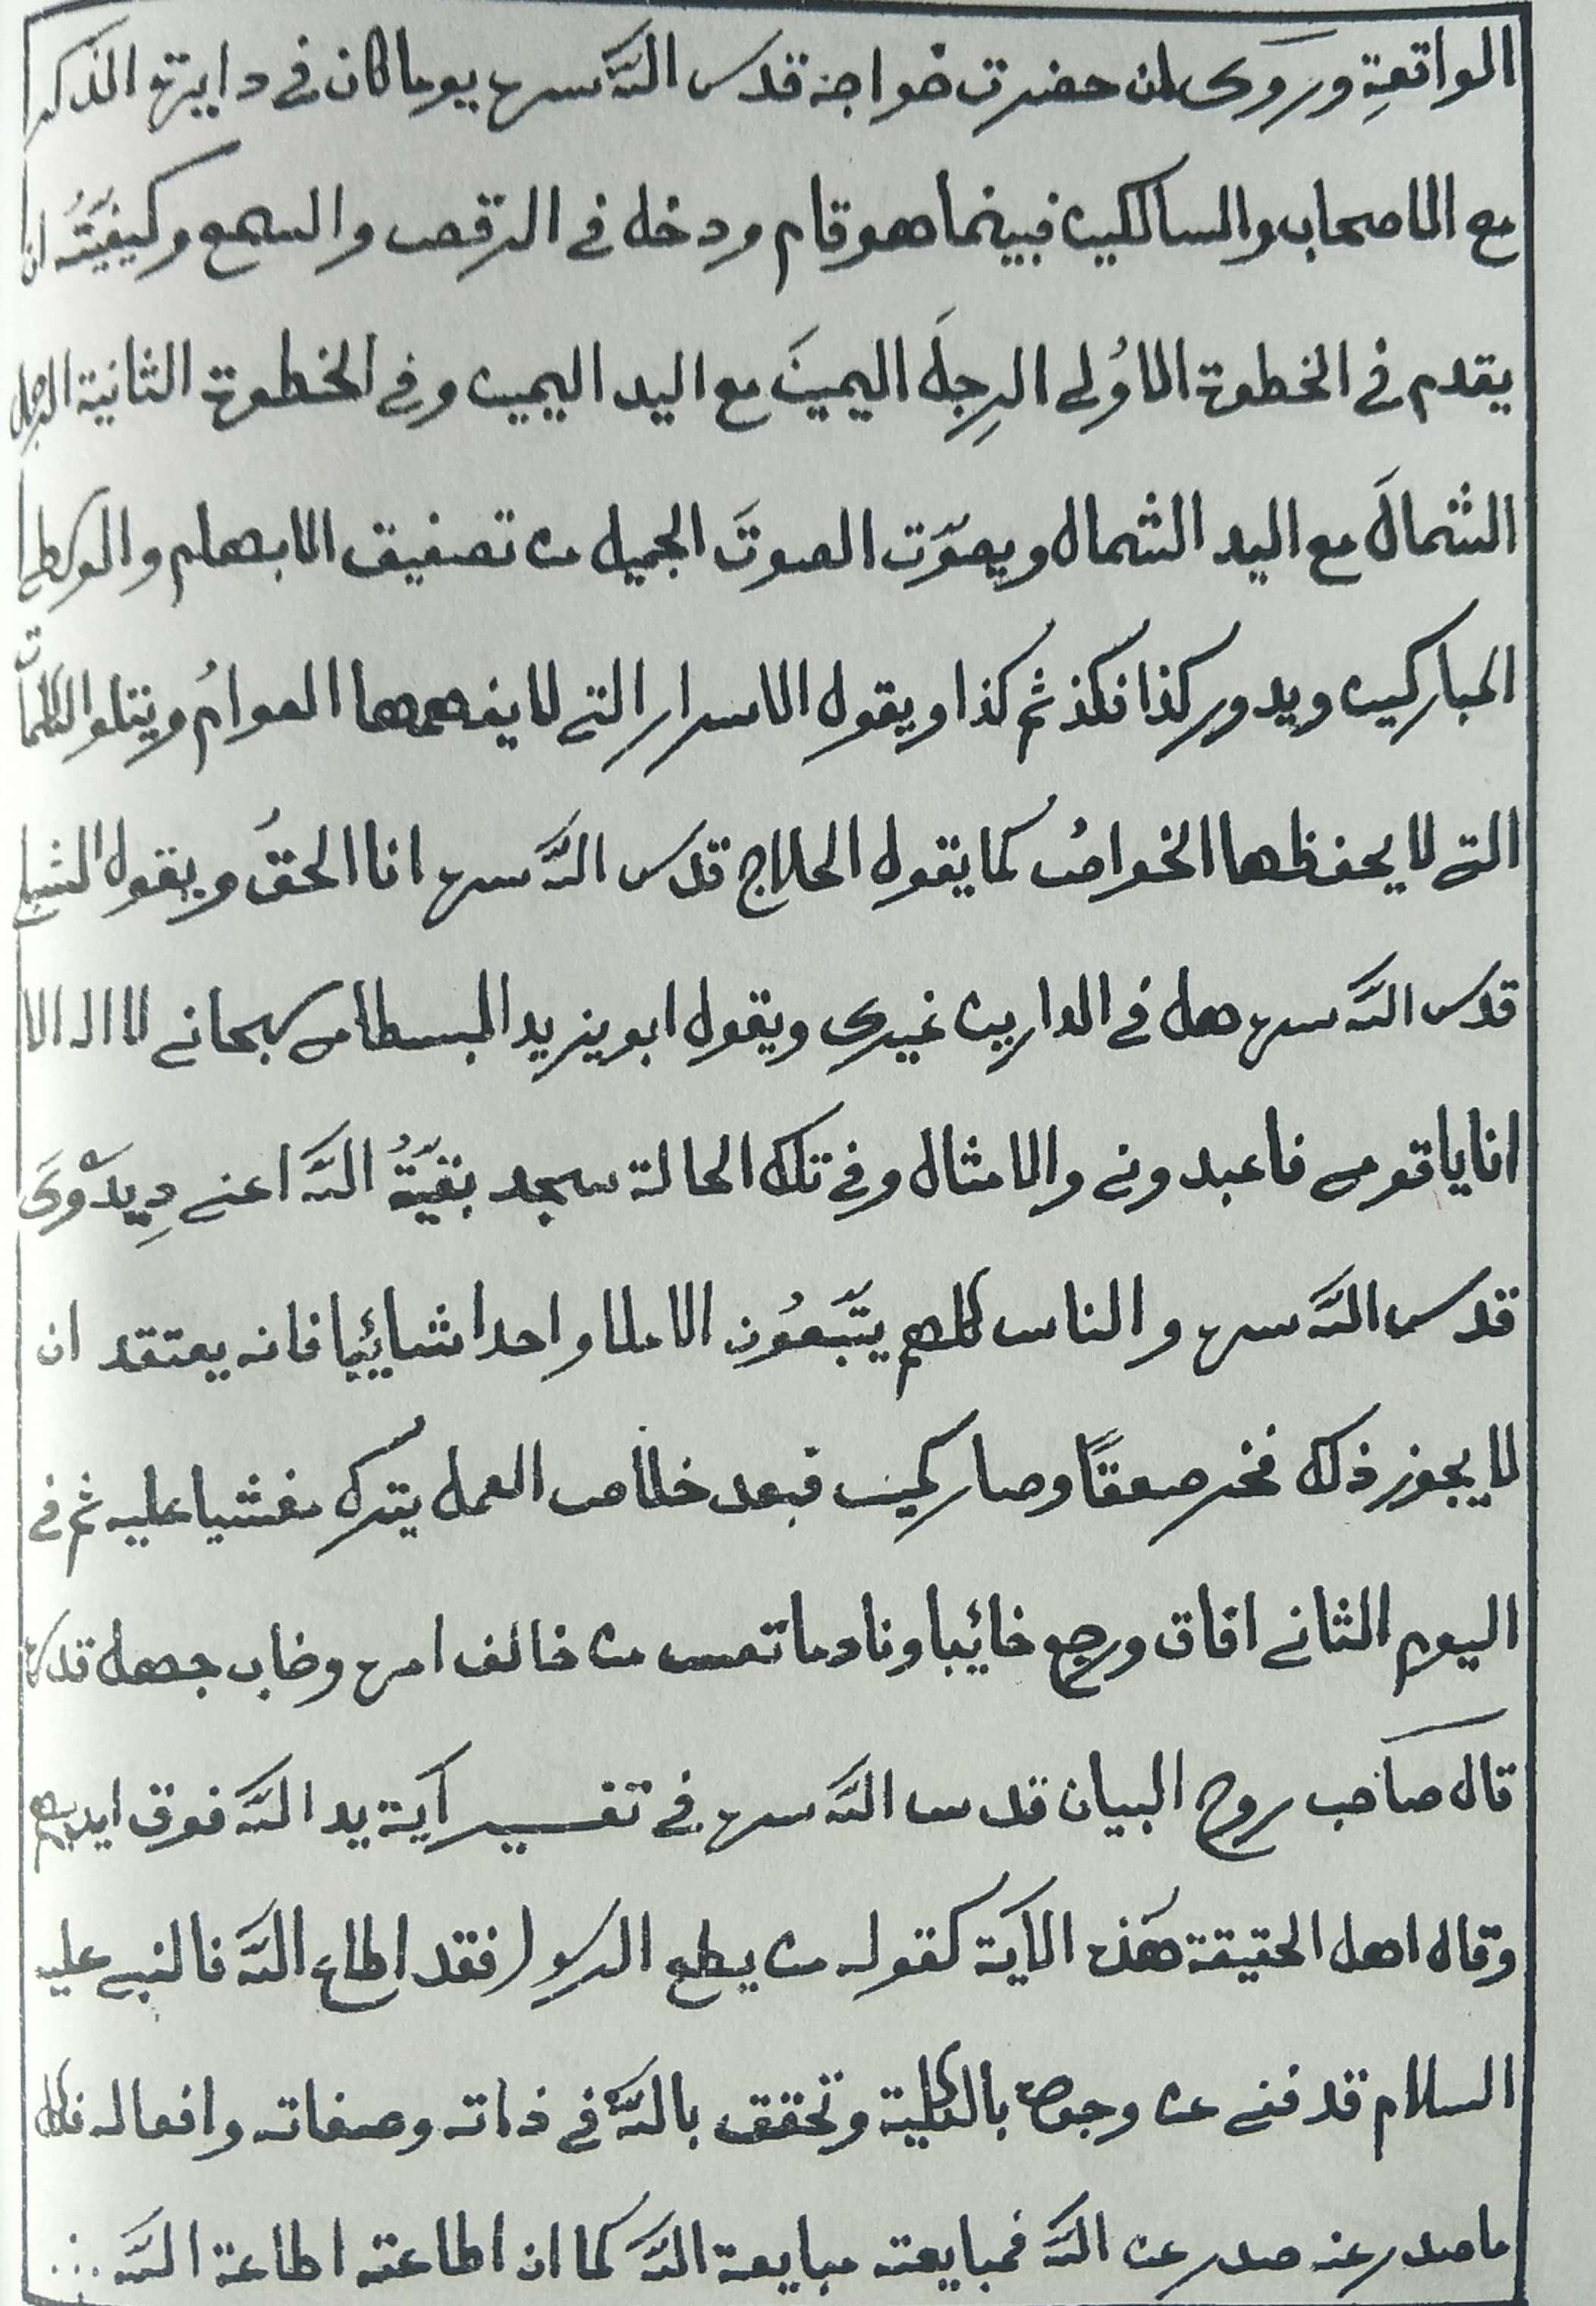 الواقعةِ وروى ان حضرت خواجه قدس الله سره يوما كان في دايرة الذكر
مع الاصحاب والسالكين فبينما هو قام ودخل في الرقص والسمع وكيفيَّتُه ان
يقدم في الخطوة الاُولى الرِجلَ اليمينَ مع اليد اليمين وفي الخطوة الثانية الرجل
الشمالَ مع اليد الشمال ويصوّت الصوتَ الجميل من تصفيق الابهام والوسطى
المباركين ويدور كذا فكذ ثم كذا ويقول الاسرار التي لا يفهمها العوامُ ويتلو الكلمات
التي لا يحفظها الخواصُ كما يقول الحلاج قدس الله سره انا الحقُ ويقول الشبلي
قدس الله سره هل في الدارين غيري ويقول ابو يزيد البسطامي سبحاني لا اله الا
انا يا قومي فاعبدوني والامثال وفي تلك الحالة سجد بقيَّةُ الله اعني دِيدَوَى
قدس الله سره والناس كلهم يتَّبعُون الا ملا واحدا شائيبا فانه يعتقد ان
لا يجوز ذلك فخر صعقًا وصار كميت فبعد خلاص العمل يترك مغشيا عليه ثم في
اليوم الثاني افاق ورجع خائيبا ونادما تعس من خالف امره وخاب جهل قدره
قال صاحب روح البيان قدس الله سره في تفسير آية يد الله فوق ايديهم
وقال اهل الحقيقة هَذه الآية كقوله من يطع الرسول فقد اطاع الله فالنبي عليه
السلام قد فني عن وجوده بالكلية وتحقق بالله في ذاته وصفاته وافعاله فكل
ما صدر عنه صدر عن الله فمبايعته مبايعة الله كما ان اطاعته اطاعة الله ∴